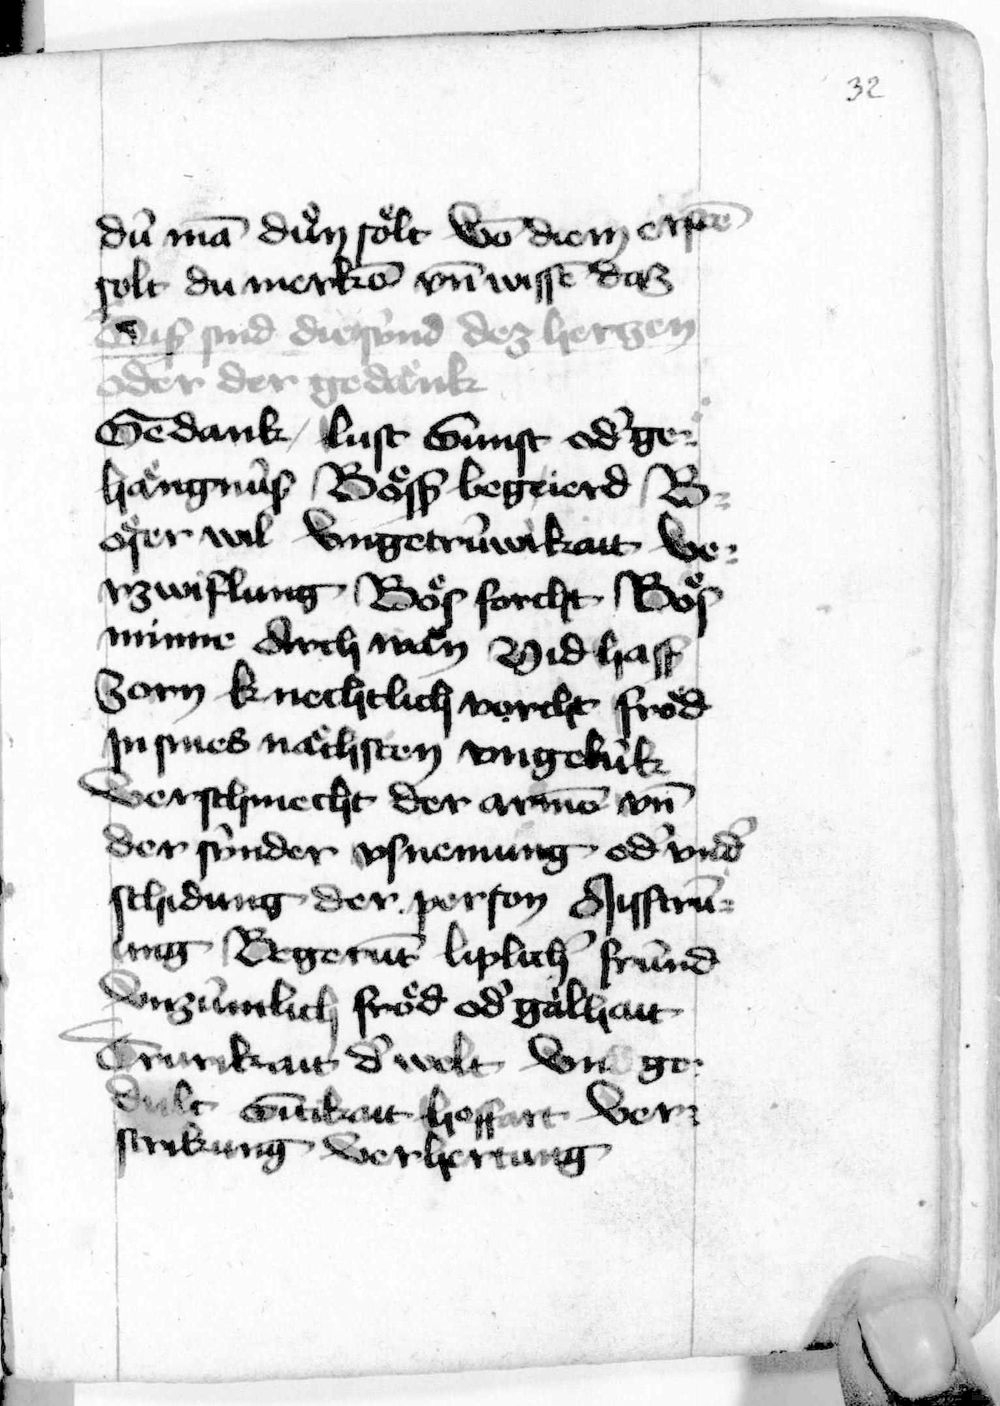 32
dú mā důn sölt Vō dem erstē
solt du merkē vn̄ wissē daz
Dis sind die sünd dez hertzen
oder der gedänk
Gedank lust Gunst od' ge⸗
hängnüß Böss begierd B⸗
öser wil Vngetrúwikait Ve⸗
rzwiflung Bös forcht Bös
minne Arch wän Nid hass
Zorn knechtlich vorcht fröd
In sines nächsten vngelük
Verschmecht der armē vn̄
der sünder vsnemung od' vnd'
schidung der person
ung liplich' fründ
Vnzimlich fröd od' gälhait
Trurikait d' welt Vn ge⸗
dult Gitikait hoffart Ver⸗
strikung Verhertung